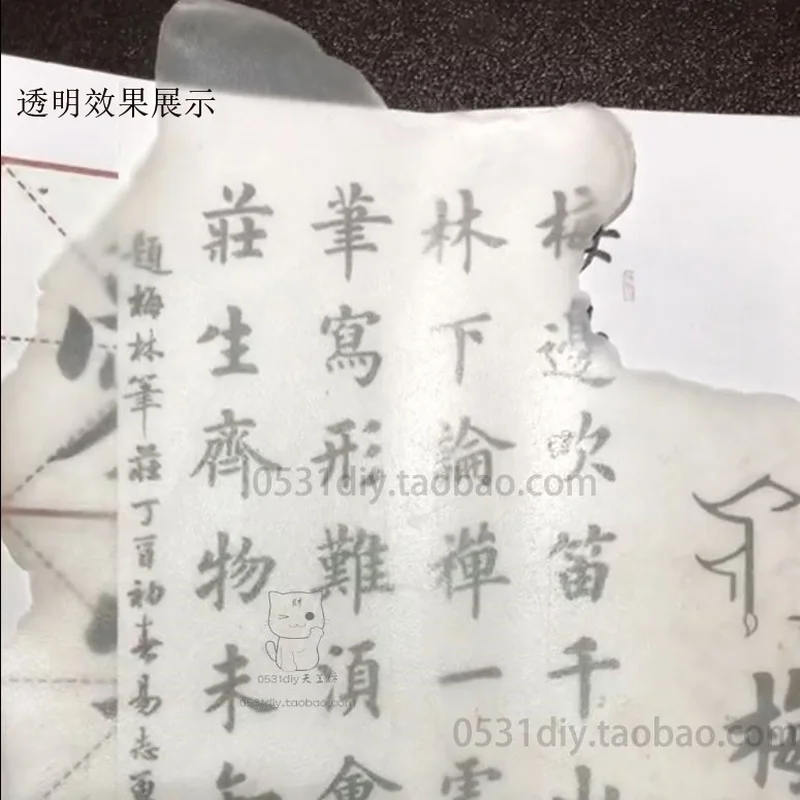 透明效果展示
梅邊吹笛千山
林下論禪一雲
筆寫形難須會
莊生齊物未知
題梅林筆莊丁酉初春易志
梅
0531diy.taobao.com
财
0531diy天工坊
0531diy.taobao.com
0531diy.taobao.com